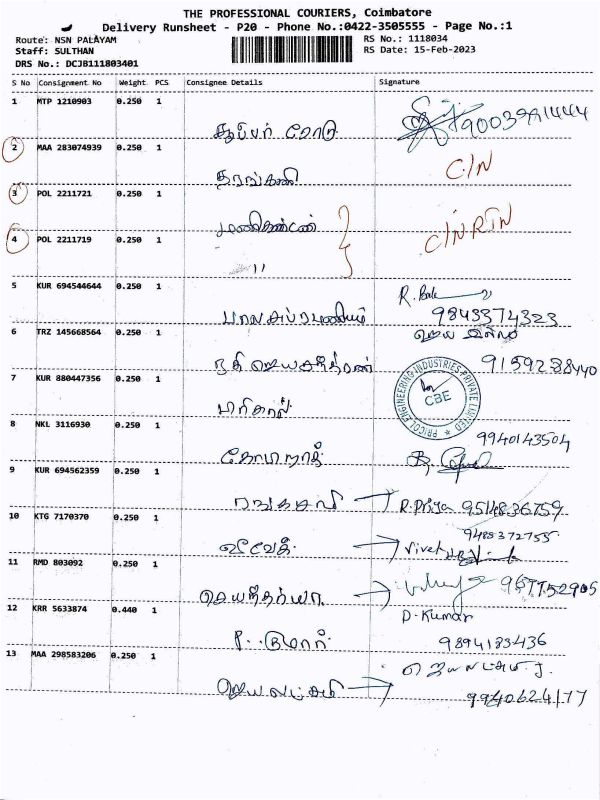 THE PROFESSIONAL COURIERS, Coimbatore
Delivery Runsheet - P20 - Phone No.:0422-3505555 - Page No.:1
Route: NSN PALAYAM RS No.: 1118034
Staff: SULTHAN RS Date: 15-Feb-2023
DRS No.: DCJB111803401
S No Consignment No Weight PCS Consignee Details Signature
1 MTP 1210903 0.250 1
சூப்பர் 9003991444
2 MAA 283074939 0.250 1
தரங்கணி C/N
3 POL 2211721 0.250 1
மணிகண்டன்
4 POL 2211719 0.250 1 C/N RTN
"
5 KUR 694544644 0.250 1 R. Bala
பாலசுப்ரமணியம் 9843374323
6 TRZ 145668564 0.250 1
9159288440
7 KUR 880447356 0.250 1
PRICOL ENGINEERING INDUSTRIES PRIVATE LIMITED
CBE
பரிகால்
8 NKL 3116930 0.250 1
9940143504
கோமளாதி
9 KUR 694562359 0.250 1
ரங்கசாமி R. Priya 9514836759
10 KTG 7170370 0.250 1 9485372755
விவேக் Vivek
11 RMD 803092 0.250 1
12 KRR 5633874 0.440 1 D. Kumar
P. குமார் 9894183436
13 MAA 298583206 0.250 1 ஜெயலட்சுமி.
ஜெயலட்சுமி 9940624177